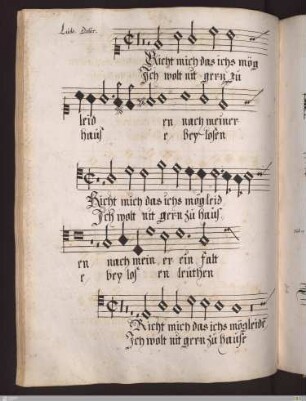 Richt mich das ichs mög
Ich wolt nit gern zü
leid en nach meiner
haüs e bey losen
Richt mich das ichs mög leid
Ich wolt nit gern zü haüs
en nach mein er ein falt
e bey los en leüthen
Richt mich das ichs mög leide
Ich wolt nit gern zü hause